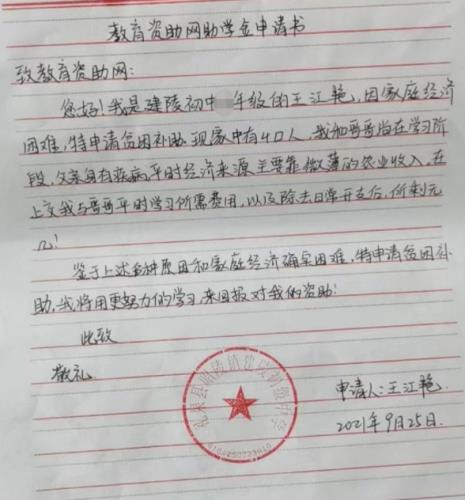 教育资助网助学金申请书
致教育资助网:
您好!我是建陵初中 年级的王江艳,因家庭经济
困难,特申请贫困补助.现家中有4口人,我和哥哥尚在学习阶
段,父亲身有疾病,平时经济来源主要靠微薄的农业收入,在
上交我与哥哥平时学习所需费用,以及除去日常开支后,所剩无
几!
鉴于上述多种原因和家庭经济确实困难,特申请贫困补
助,我将用更努力的学习,来回报对我们资助!
此致
敬礼
礼泉县昭陵镇建陵初级中学
申请人:王江艳.
2021年9月25日.